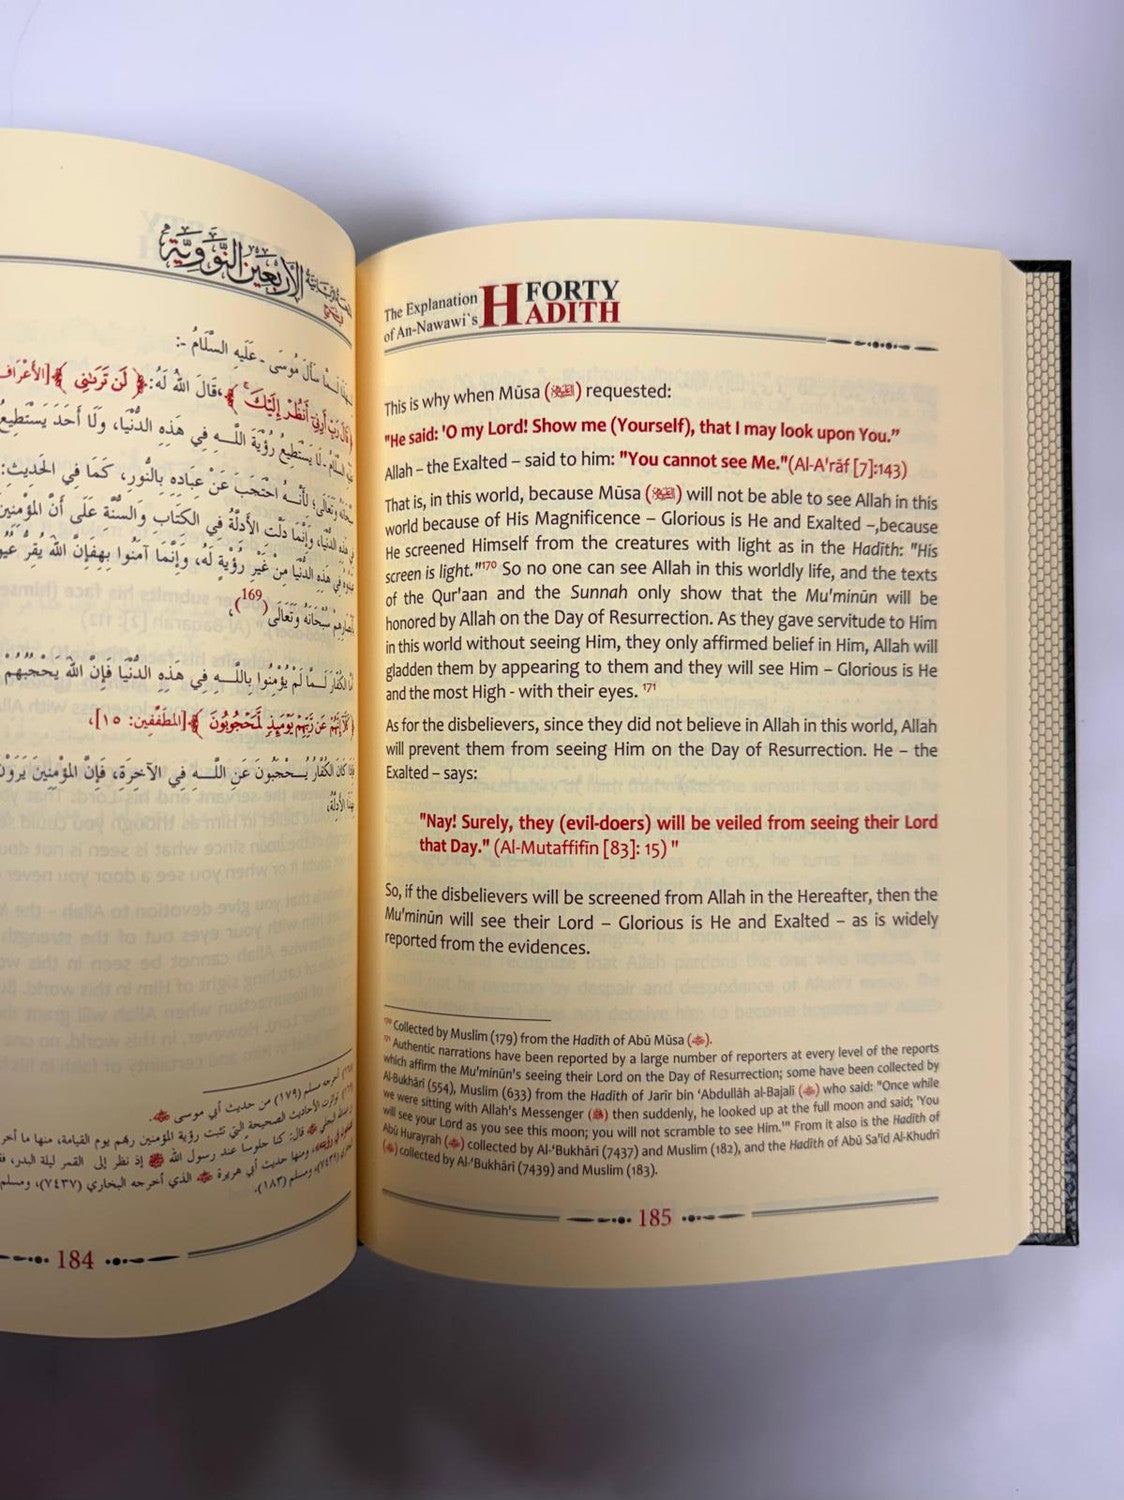 الأربعين النووية
لما سأل موسى - عَلَيهِ السَّلَامُ -:
﴿قَالَ رَبِّ أَرِنِي أَنظُرْ إِلَيْكَ﴾، قَالَ اللهُ لَهُ: ﴿لَن تَرَىٰنِي﴾ [الأَعْرَاف
السَّلَامُ - لَا يَسْتَطِيعُ رُؤْيَةَ اللَّـهِ فِي هَذِهِ الدُّنْيَا، وَلَا أَحَدَ يَسْتَطِيعُ
سُبْحَانَهُ وَتَعَالَى؛ لِأَنَّـهُ احْتَجَبَ عَنْ عِبَادِهِ بِالنُّورِ، كَمَا فِي الْحَدِيثِ:
فِي هَذِهِ الدُّنْيَا، وَإِنَّمَا دَلَّتِ الأَدِلَّةُ فِي الكِتَابِ وَالسُّنَّةِ عَلَى أَنَّ المُؤْمِنِينَ
فِي هَذِهِ الدُّنْيَا مِنْ غَيْرِ رُؤْيَةٍ لَهُ، وَإِنَّمَا آمَنُوا بِهِ فَإِنَّ اللهَ يُقِرُّ
سُبْحَانَهُ وَتَعَالَى (169)،
الكُفَّارُ لَـمَّا لَمْ يُؤْمِنُوا بِاللَّـهِ فِي هَذِهِ الدُّنْيَا فَإِنَّ اللهَ يَحْجُبُهُمْ
﴿كَلَّا إِنَّهُمْ عَن رَّبِّهِمْ يَوْمَئِذٍ لَّمَحْجُوبُونَ﴾ [المُطَفِّفِين: ١٥]،
كَانَ الكُفَّارُ يُـحْجَبُونَ عَنِ اللَّـهِ فِي الآخِرَةِ، فَإِنَّ المُؤْمِنِينَ يَرَوْنَ
الأَدِلَّةُ،
أخرجه مسلم (١٧٩) من حديث أبي موسى ﷺ.
الأحاديث الصحيحة التي تثبت رؤية المؤمنين ربهم يوم القيامة، منها ما
قال: كنا جلوساً عند رسول الله ﷺ إذ نظر إلى القمر ليلة البدر،
ومنها حديث أبي هريرة الذي أخرجه البخاري (٧٤٣٧)،
(٧٤٣٩)، ومسلم (١٨٣).
184
The Explanation
of An-Nawawi`s
FORTY
HADITH
This is why when Mūsa (عليه السلام) requested:
"He said: 'O my Lord! Show me (Yourself), that I may look upon You."
Allah – the Exalted – said to him: "You cannot see Me."(Al-A'rāf [7]:143)
That is, in this world, because Mūsa (عليه السلام) will not be able to see Allah in this
world because of His Magnificence – Glorious is He and Exalted –,because
He screened Himself from the creatures with light as in the Hadīth: "His
screen is light."170 So no one can see Allah in this worldly life, and the texts
of the Qur'aan and the Sunnah only show that the Mu'minūn will be
honored by Allah on the Day of Resurrection. As they gave servitude to Him
in this world without seeing Him, they only affirmed belief in Him, Allah will
gladden them by appearing to them and they will see Him – Glorious is He
and the most High - with their eyes. 171
As for the disbelievers, since they did not believe in Allah in this world, Allah
will prevent them from seeing Him on the Day of Resurrection. He – the
Exalted – says:
"Nay! Surely, they (evil-doers) will be veiled from seeing their Lord
that Day." (Al-Mutaffifīn [83]: 15) "
So, if the disbelievers will be screened from Allah in the Hereafter, then the
Mu'minūn will see their Lord – Glorious is He and Exalted – as is widely
reported from the evidences.
170 Collected by Muslim (179) from the Hadīth of Abū Mūsa ().
171 Authentic narrations have been reported by a large number of reporters at every level of the reports
which affirm the Mu'minūn's seeing their Lord on the Day of Resurrection; some have been collected by
Al-Bukhārī (554), Muslim (633) from the Hadīth of Jarīr bin 'Abdullāh al-Bajalī () who said: "Once while
we were sitting with Allah's Messenger (ﷺ) then suddenly, he looked up at the full moon and said; 'You
will see your Lord as you see this moon; you will not scramble to see Him.'" From it also is the Hadīth of
Abū Hurayrah () collected by Al-'Bukhāri (7437) and Muslim (182), and the Hadīth of Abū Sa'īd Al-Khudrī
() collected by Al-'Bukhāri (7439) and Muslim (183).
185